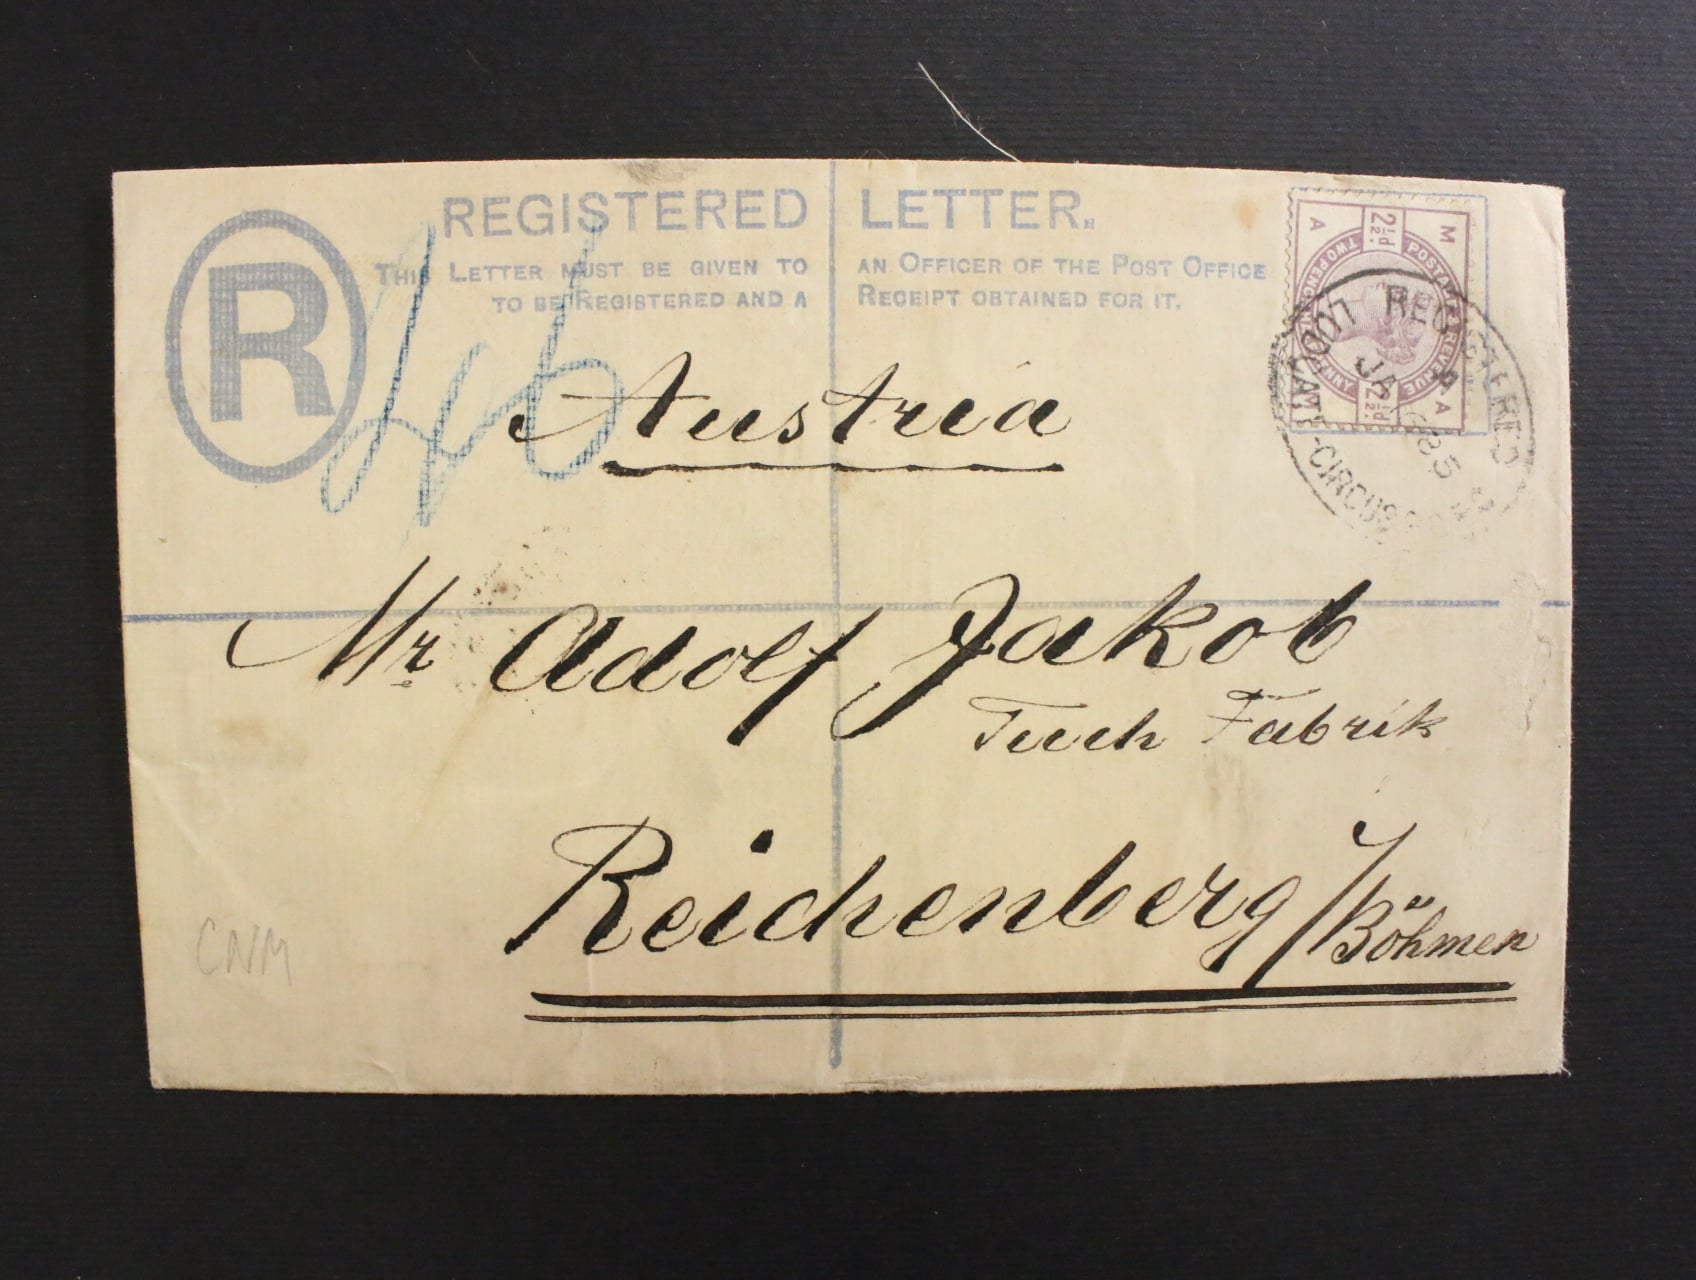 REGISTERED LETTER.
THIS LETTER MUST BE GIVEN TO AN OFFICER OF THE POST OFFICE
TO BE REGISTERED AND A RECEIPT OBTAINED FOR IT.
R
46
M A
2½d.
POSTAGE & REVENUE
TWO PENCE HALF PENNY
2½d.
A
REGISTERED
LUDGATE-CIRCUS
JA 85
Austria
Mr Adolf Jakob
Tuch Fabrik
Reichenberg / Böhmen
CNM